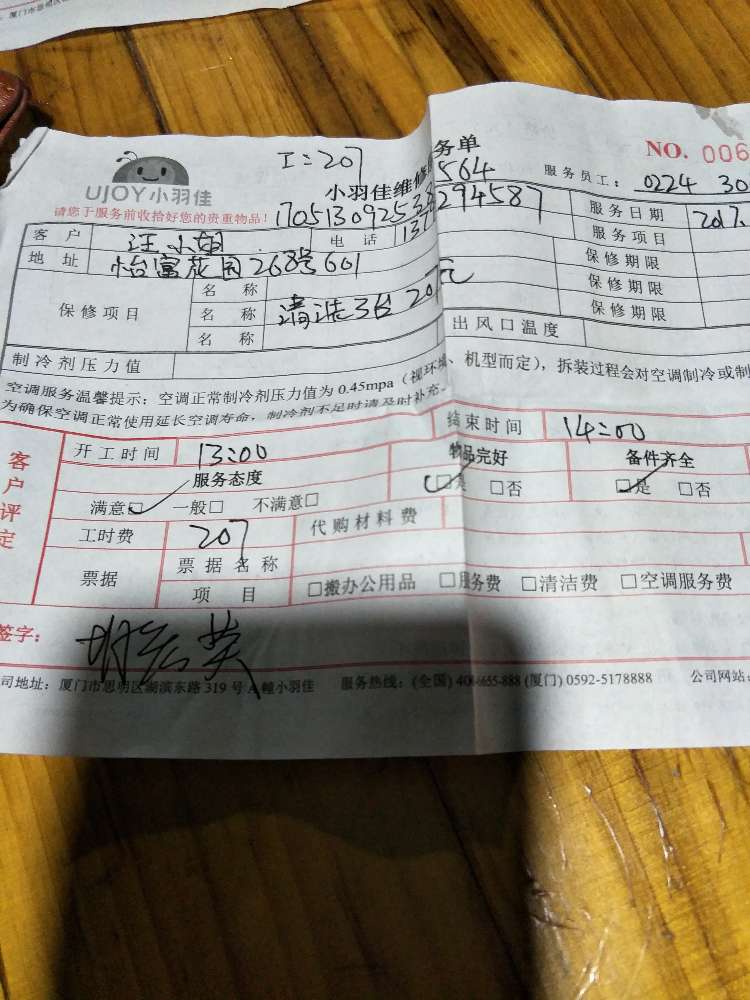 I=207
务单
NO. 006
UJOY小羽佳
小羽佳维修
564
服务员工: 0224 30
请您于服务前收拾好您的贵重物品!
客户 汪小姐 电话 294587
服务日期 2017.
地址 怡富花园268号601
服务项目
保修期限
保修期限
保修期限
保修项目
名称
名称 清洗3台 207元
名称
制冷剂压力值
出风口温度
空调服务温馨提示: 空调正常制冷剂压力值为 0.45mpa (视环境、机型而定), 拆装过程会对空调制冷或制
为确保空调正常使用延长空调寿命, 制冷剂不足时请及时补充
客户评定
开工时间 13:00 结束时间 14:00
服务态度 物品完好 备件齐全
满意□ 一般□ 不满意□ □是 □否 □是 □否
工时费 207 代购材料费
票据
票据名称
项目 □搬办公用品 □服务费 □清洁费 □空调服务费
签字:
司地址: 厦门市思明区湖滨东路 319 号 A 幢小羽佳 服务热线: (全国) 400-6655-888 (厦门) 0592-5178888 公司网站: